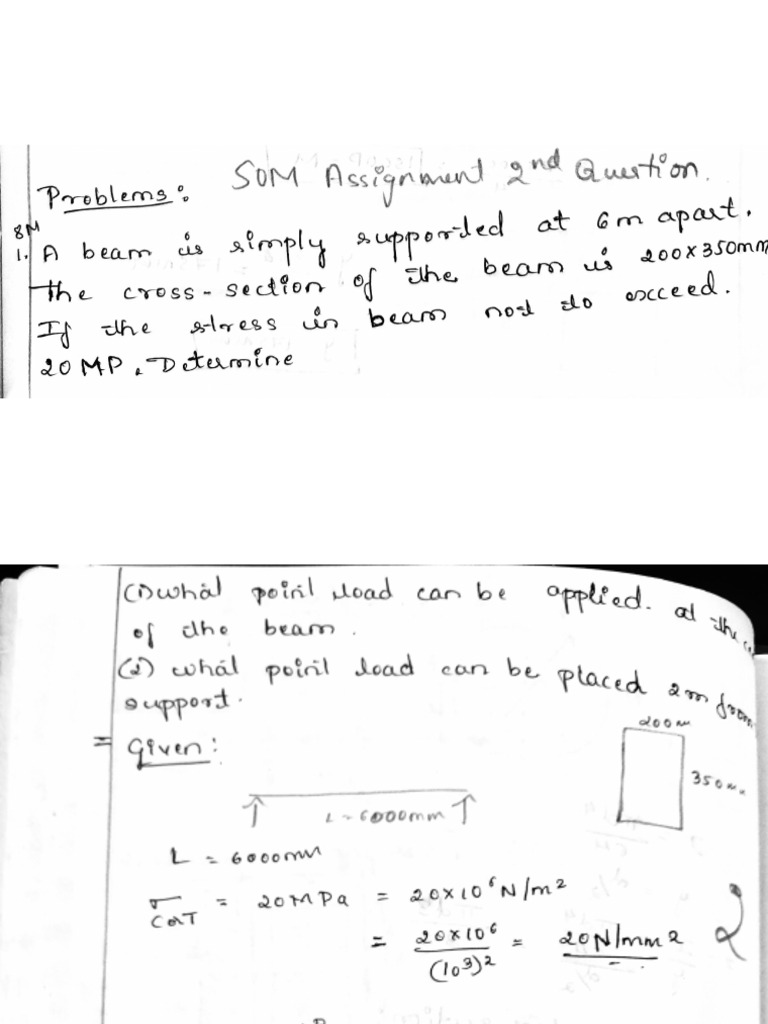 SOM Assignment 2nd Question.
Problems:
8M
1. A beam is simply supported at 6m apart.
The cross-section of the beam is 200x350mm
If the stress in beam not to exceed.
20 MP. Determine
(1) what point load can be applied. at the
of the beam.
(2) what point load can be placed 2m from
support.
= Given:
200m
350mm
L = 6000mm
L = 6000mm
σ = 20MPa = 20x10⁶ N/m²
C or T
= 20x10⁶ / (10³)² = 20N/mm²